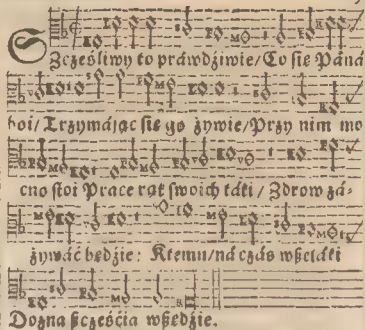 Szcześliwy to prawdźiwie/ Co śie Páná
boi/ Trzymáiąc śię go żywie/ Przy nim mo
cno stoi Prace rąk swoich táki / Zdrow zá-
żywáć będźie: Ktemu/ ná czás wszeláki
Dozna szcześćia wszędźie.